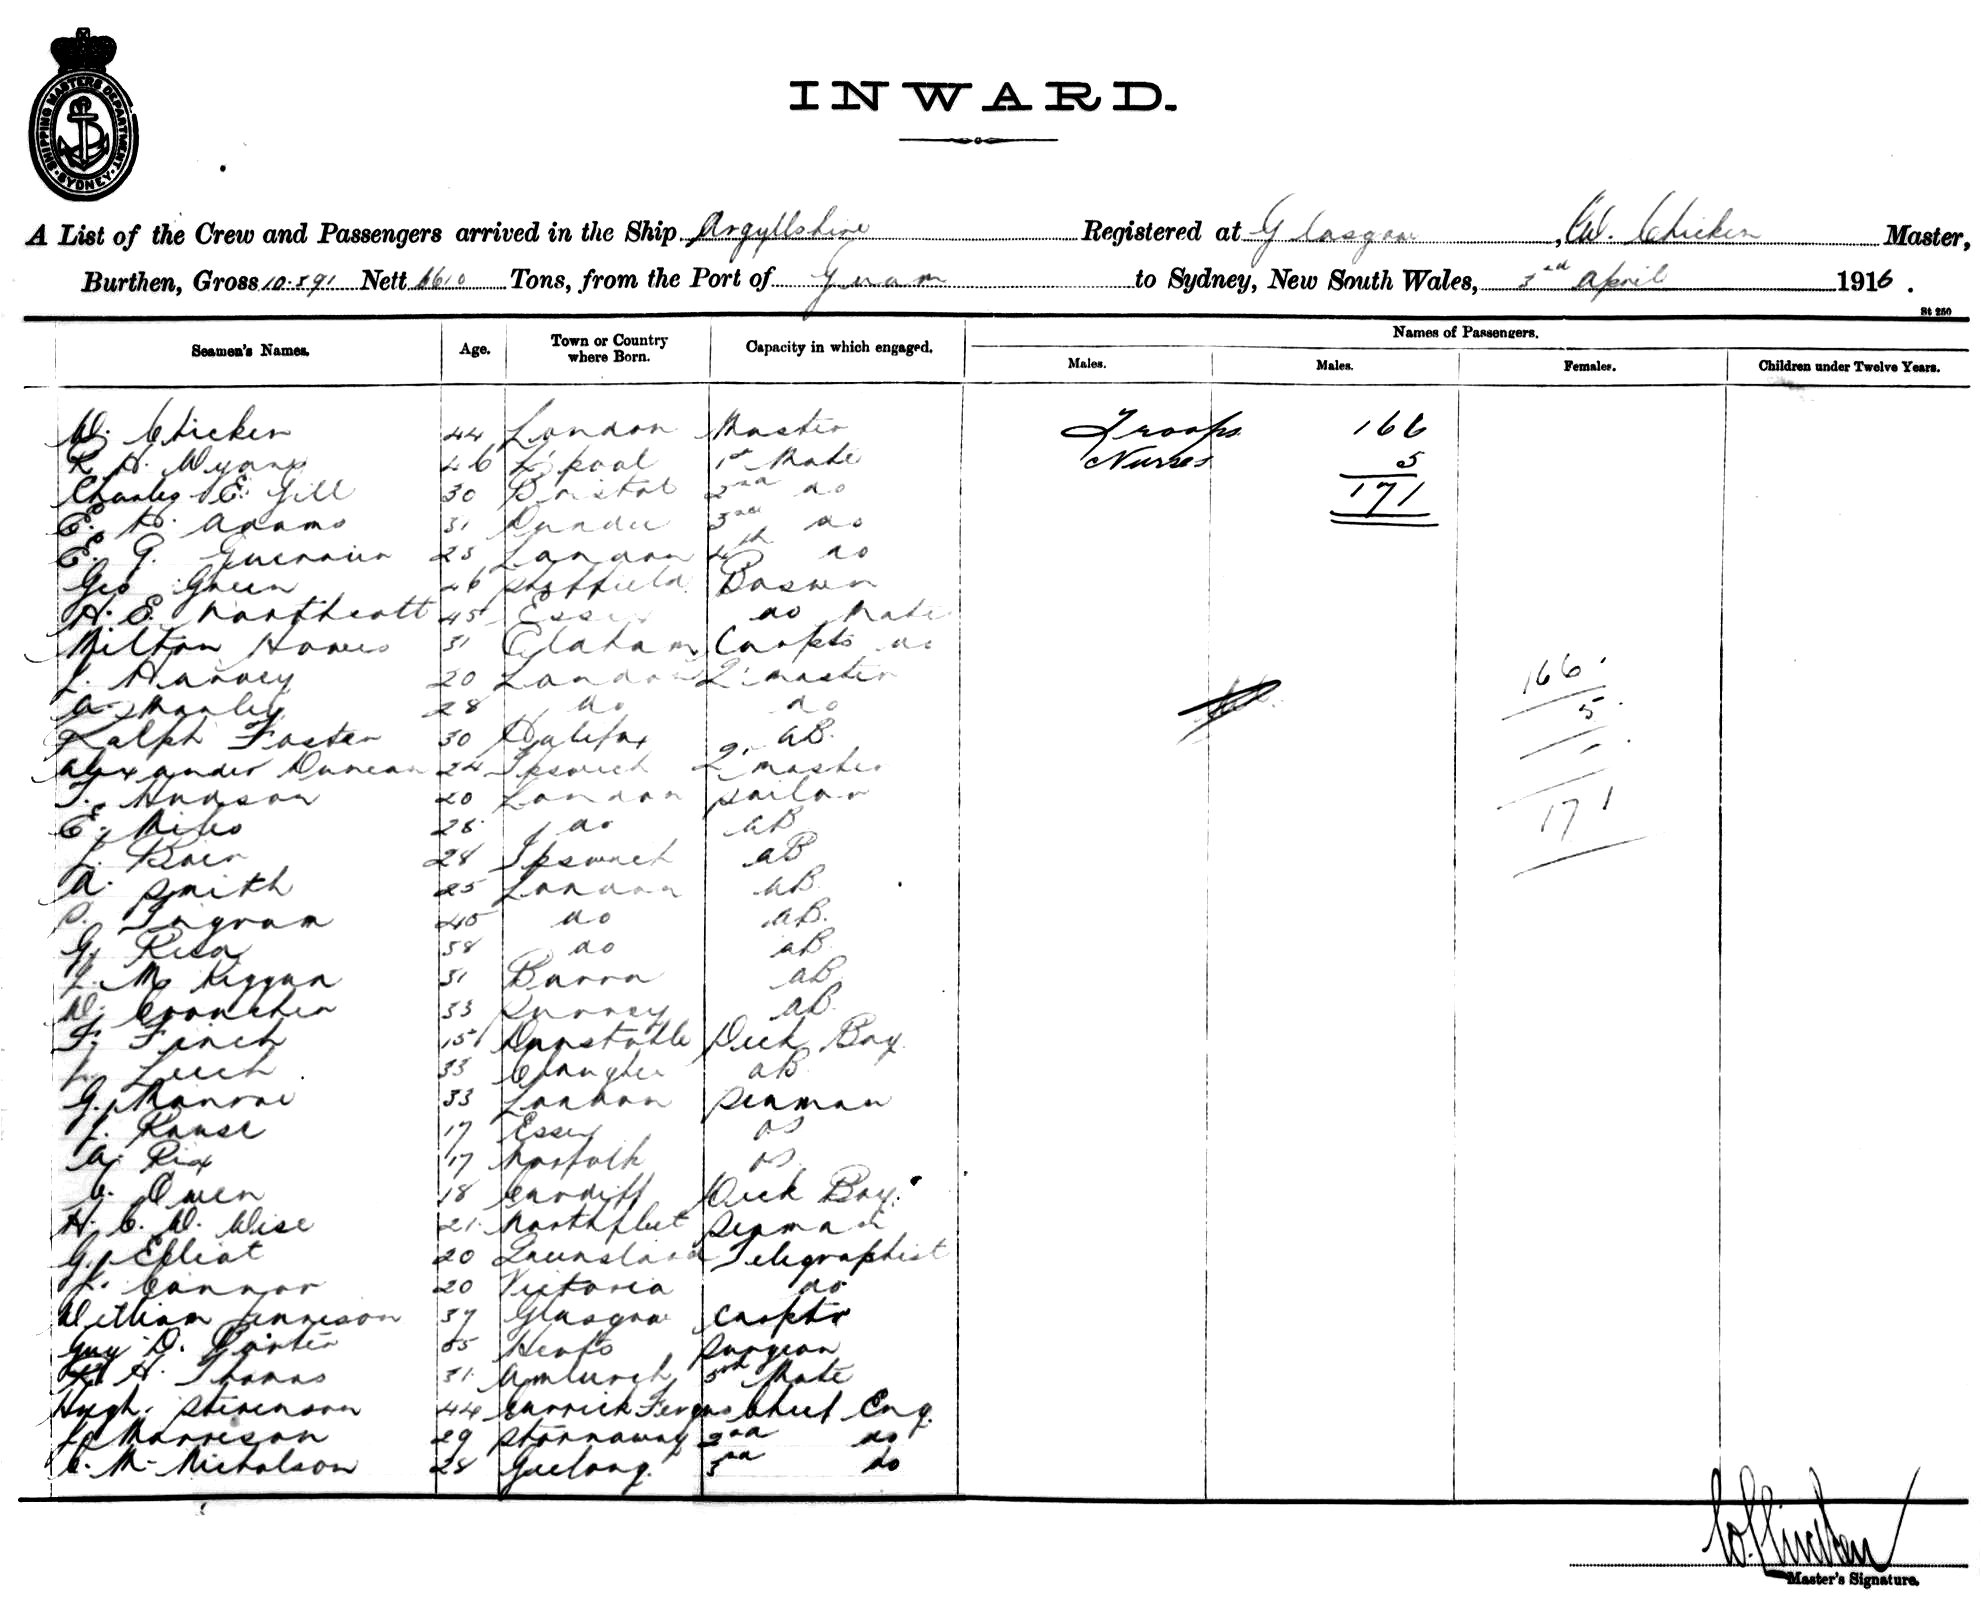 SHIPPING MASTERS DEPARTMENT
SYDNEY
INWARD.
A List of the Crew and Passengers arrived in the Ship Argyllshire Registered at Glasgow, W. Chicken Master,
Burthen, Gross 10.391 Nett 6610 Tons, from the Port of to Sydney, New South Wales, 3rd April 1916.
St 250
Seamen's Names. Age. Town or Country where Born. Capacity in which engaged. Names of Passengers.
Males. Males. Females. Children under Twelve Years.
W. Chicken 44 London Master Troops 166
R. H. 46 L'pool 1st Mate Nurses 5
Charles E. Gill 30 Bristol 2nd do 171
E. H. Adams 31 Dundee 3rd do
E. G. 25 London 4th do
Geo Green 26 Sheffield Boswn
H. E. Northcott 45 Essex do Mate
Milton Howes 31 Carptr
J. Harvey 20 London Q' master 166
A. Manley 28 do do 5
Ralph Foster 30 Halifax AB.
Alexander Duncan 24 Ipswich Q' master
T. Hudson 20 London Sailor 171
E. Miles 28 do AB
28 Ipswich AB
A. Smith 25 London AB.
P. Ingram 45 do AB.
G. 38 do AB
J. Mc Kiggan 31 Barra AB
W. 33 Surrey AB
F. Finch 15 Dunstable Deck Boy
Leech 33 AB
G. Monroe 33 London Seaman
J. Rouse 17 Essex OS
A. Rix 17 Norfolk OS
C. Owen 18 Cardiff Deck Boy.
H. C. W. Wise 21 Northfleet Seaman
G. Elliot 20 Queensland Telegraphist
J. Connor 20 Victoria do
William Jennison 37 Glasgow Carptr
Guy D. Porter 55 Herts Surgeon
H. Thomas 31 Amlwch 5th Mate
Hugh Stevenson 44 Carrick Fergus Chief Eng.
J. Morrison 29 Stornaway 2nd do
C. M. Nicholson 28 Geelong. 3rd do
W. Chicken
Master's Signature.